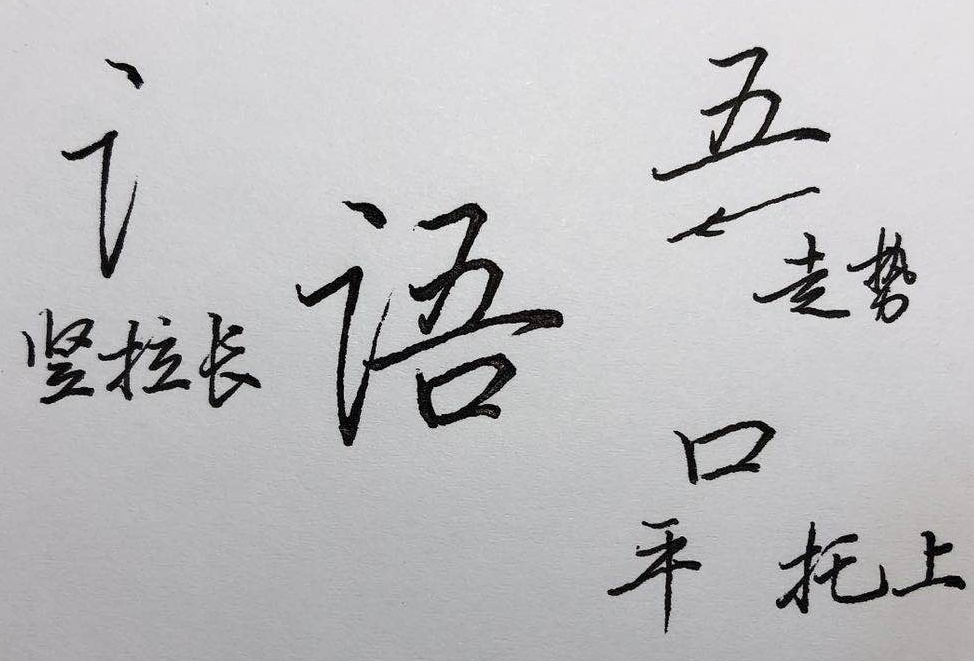 讠
竖拉长
语
五
走势
口
平 托上